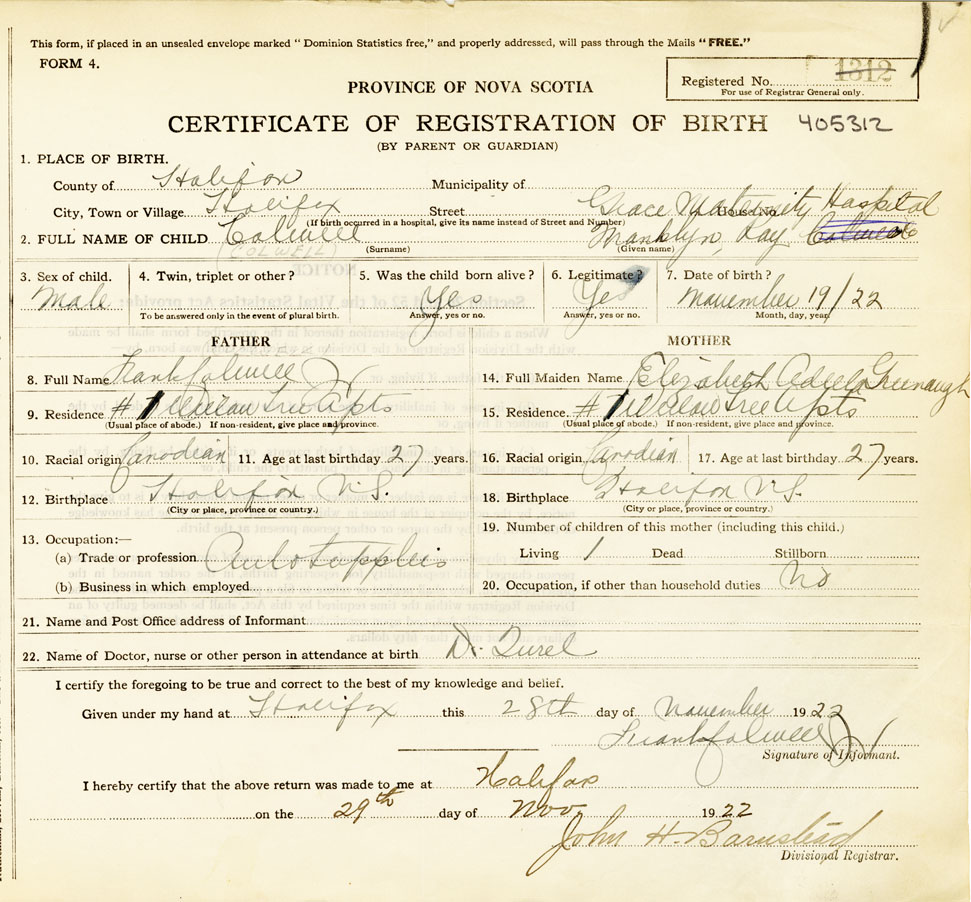 This form, if placed in an unsealed envelope marked "Dominion Statistics free," and properly addressed, will pass through the Mails "FREE."
FORM 4.
Registered No. 1312
For use of Registrar General only.
PROVINCE OF NOVA SCOTIA
CERTIFICATE OF REGISTRATION OF BIRTH 405312
(BY PARENT OR GUARDIAN)
1. PLACE OF BIRTH.
County of Halifax Municipality of
City, Town or Village Halifax Street Grace Maternity Hospital House No.
(If birth occurred in a hospital, give its name instead of Street and Number)
2. FULL NAME OF CHILD Colwell Franklyn, Ray
COLWELL (Surname) (Given name)
3. Sex of child. 4. Twin, triplet or other? 5. Was the child born alive? 6. Legitimate? 7. Date of birth?
Male Yes Yes November 19/22
To be answered only in the event of plural birth. Answer, yes or no. Answer, yes or no. Month, day, year.
FATHER MOTHER
8. Full Name Frank Colwell Jr 14. Full Maiden Name Elizabeth Adela Greenaugh
9. Residence. # 1 Willow Tree Apts 15. Residence. # 1 Willow Tree Apts
(Usual place of abode.) If non-resident, give place and province. (Usual place of abode.) If non-resident, give place and province.
10. Racial origin Canadian 11. Age at last birthday 27 years. 16. Racial origin Canadian 17. Age at last birthday 27 years.
12. Birthplace Halifax N.S. 18. Birthplace Halifax N.S.
(City or place, province or country.) (City or place, province or country.)
19. Number of children of this mother (including this child.)
13. Occupation:—
(a) Trade or profession Auto Supplies Living 1 Dead Stillborn
(b) Business in which employed 20. Occupation, if other than household duties No
21. Name and Post Office address of Informant
22. Name of Doctor, nurse or other person in attendance at birth Dr.
I certify the foregoing to be true and correct to the best of my knowledge and belief.
Given under my hand at Halifax this 28th day of November 1922
Frank Colwell Jr
Signature of Informant.
I hereby certify that the above return was made to me at Halifax
on the 29th day of Nov. 1922
John H. Barnstead
Divisional Registrar.